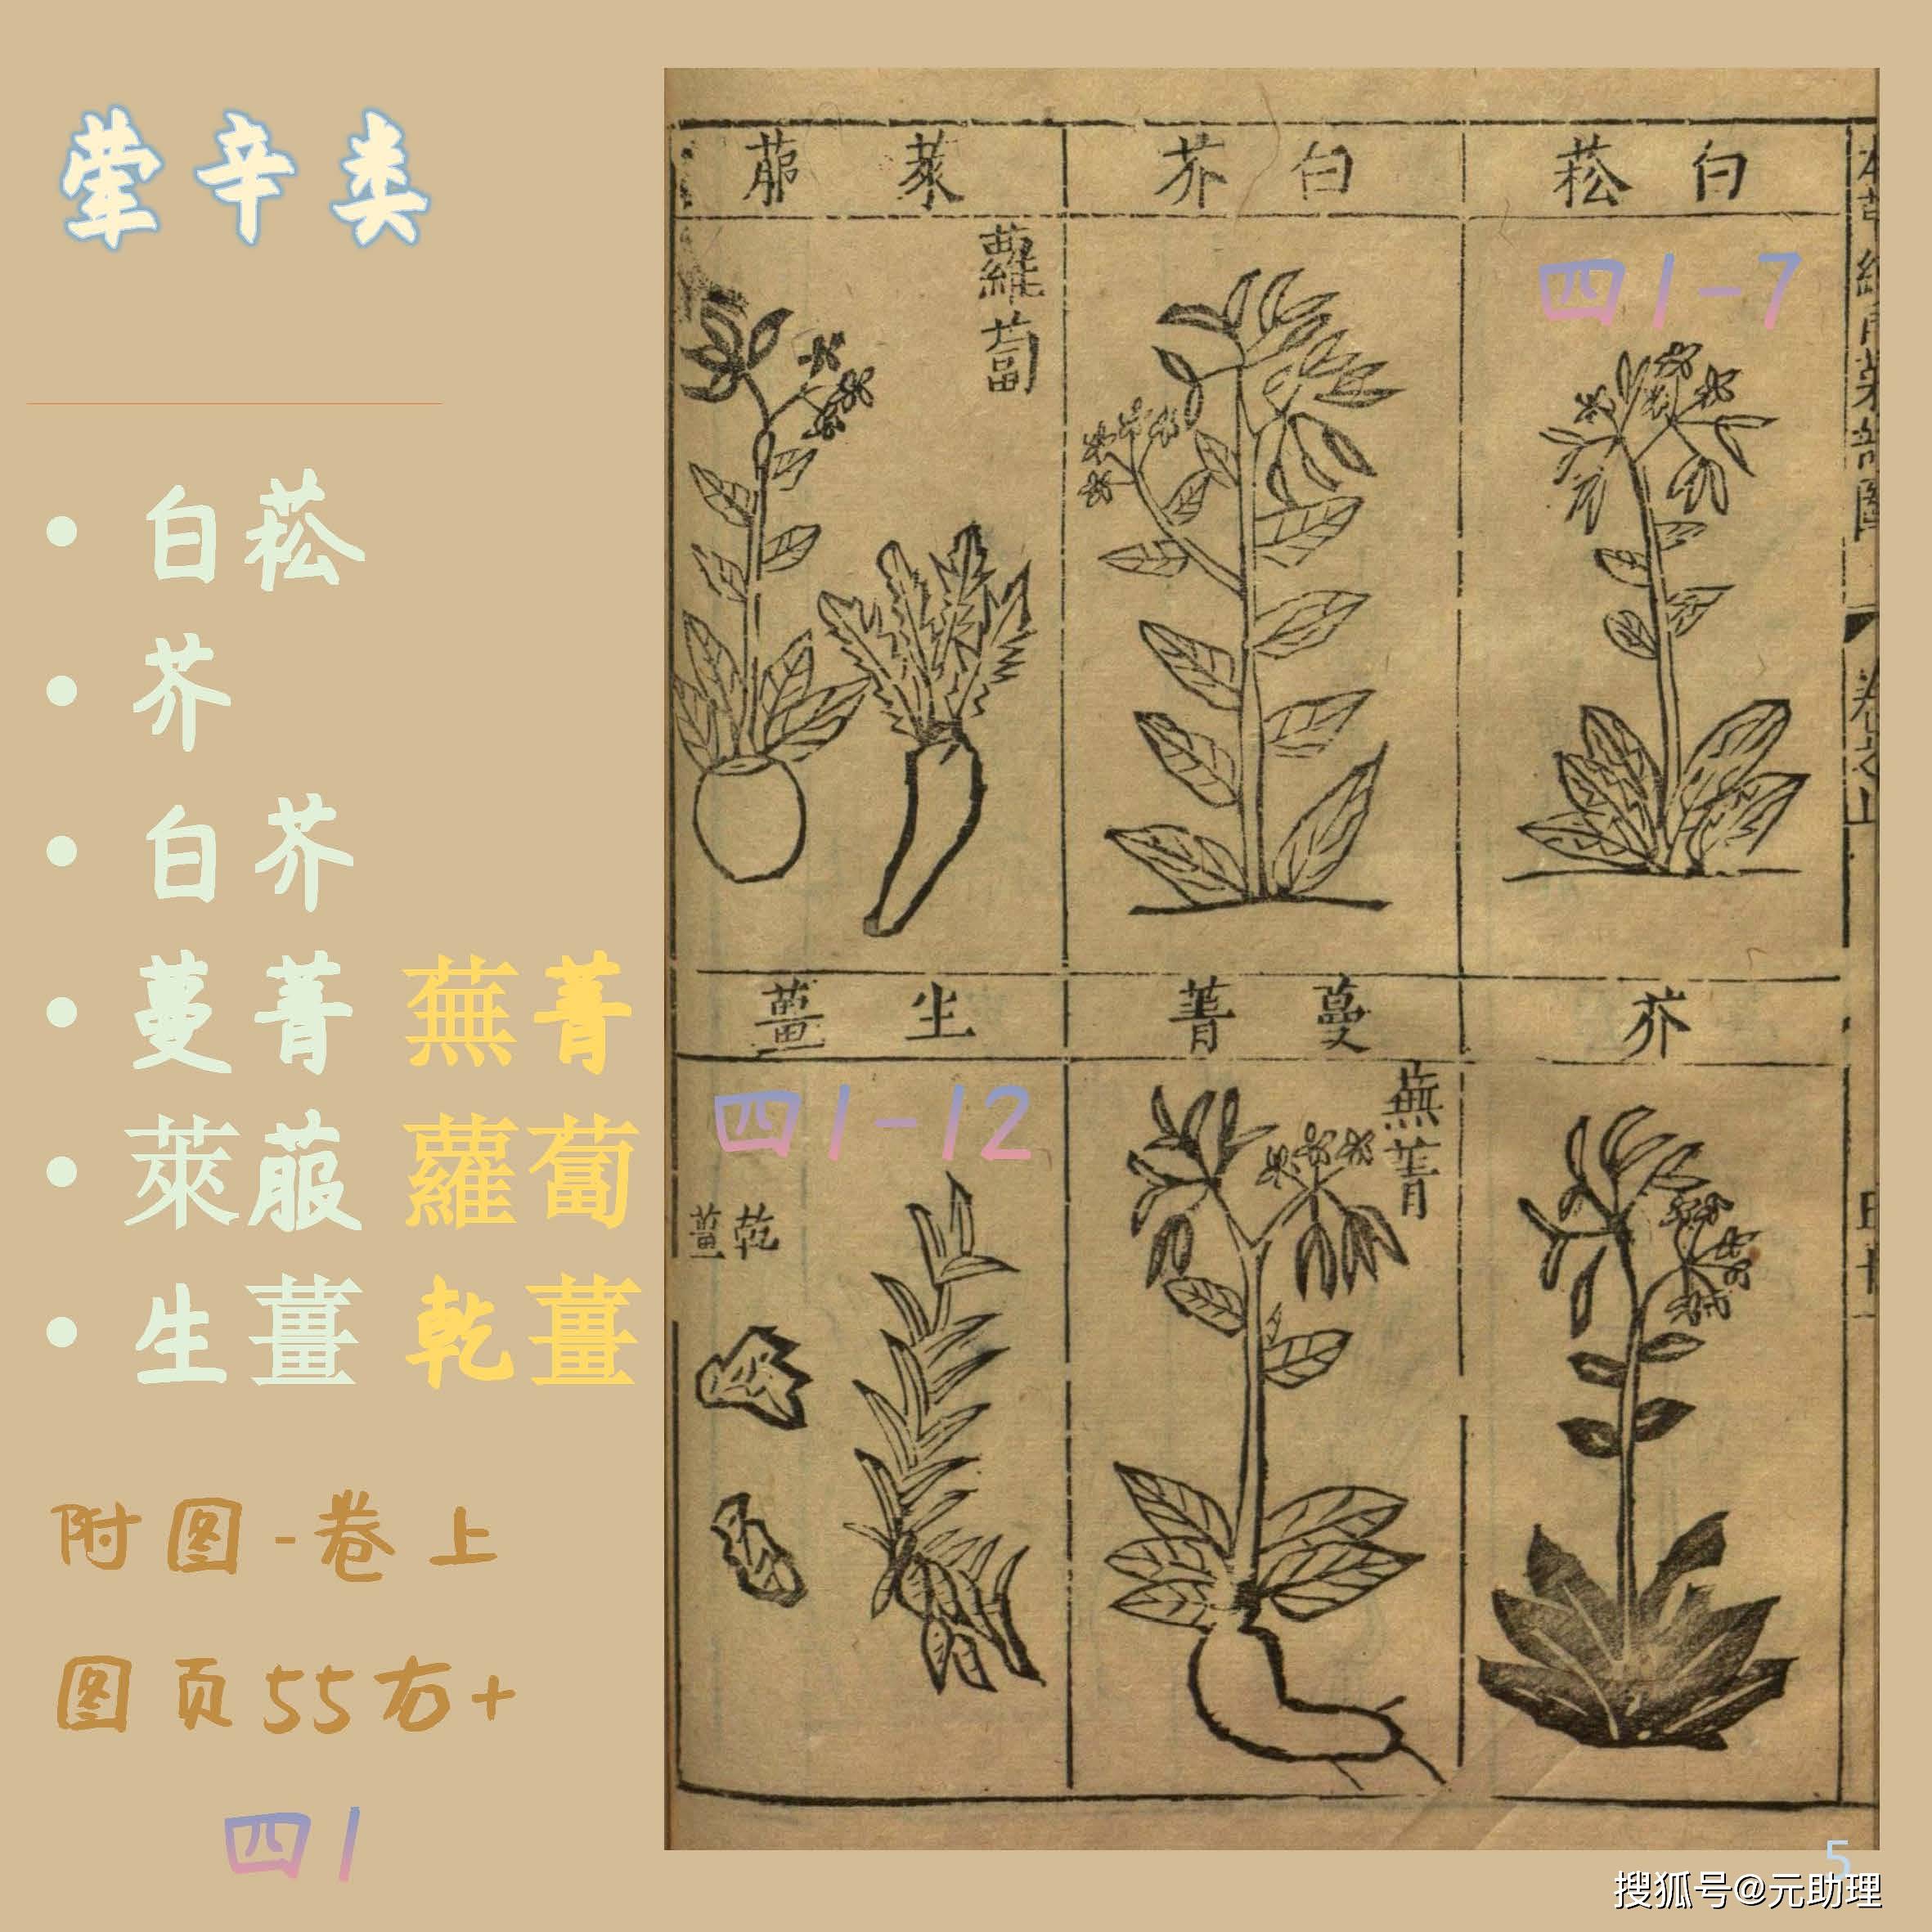 荤辛类
白菘
芥
白芥
蔓菁 蕪菁
萊菔 蘿蔔
生薑 乾薑
附图-卷上
图页55右+
四1
白菘
四1-7
白芥
萊菔
蘿蔔
芥
蔓菁
蕪菁
生薑
四1-12
乾薑
5
搜狐号@元助理